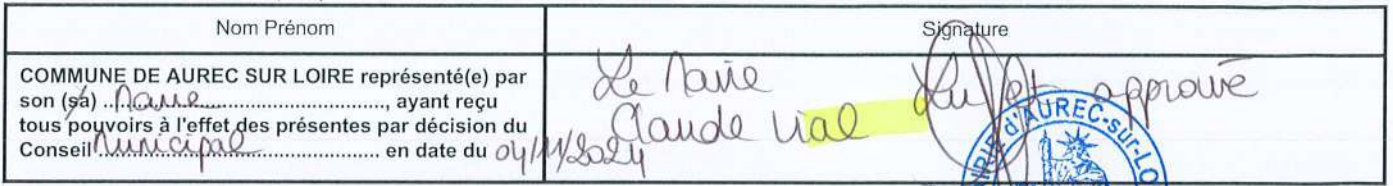 Nom Prénom
Signature
COMMUNE DE AUREC SUR LOIRE représenté(e) par
son (sa) Maire, ayant reçu
tous pouvoirs à l'effet des présentes par décision du
Conseil Municipal en date du 04/11/2024
Le Maire
Claude Vial
Lu et approuvé
MAIRIE d'AUREC-sur-LO